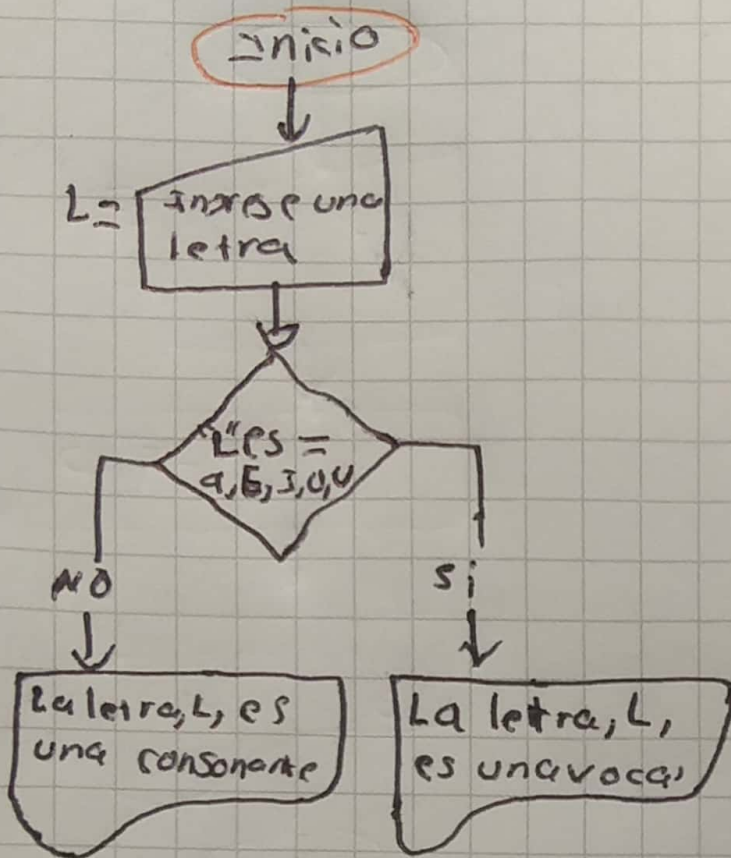 Inicio
L=
Ingrese una
letra
"L" es =
a, E, I, O, U
NO
si
La letra, L, es
una consonante
La letra, L,
es una vocal